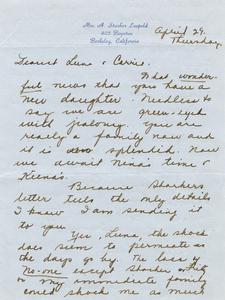 Mrs. A. Starker Leopold
805 Boynton
Berkeley, California
April 29.
Thursday
Dearest Luna & Carrie,
What wonder-
ful news that you have a
new daughter. Needless to
say we are green-eyed
with jealousy. You are
really a family now and
it is so splendid. Now
we await Nina's time &
Keena's.
Because Starker's
letter tells the only details
I know I am sending it
to you
Yes, Luna, the shock
does seem to permeate as
the days go by. The loss of
No-one except Starker
or my immediate family
could shock me as much